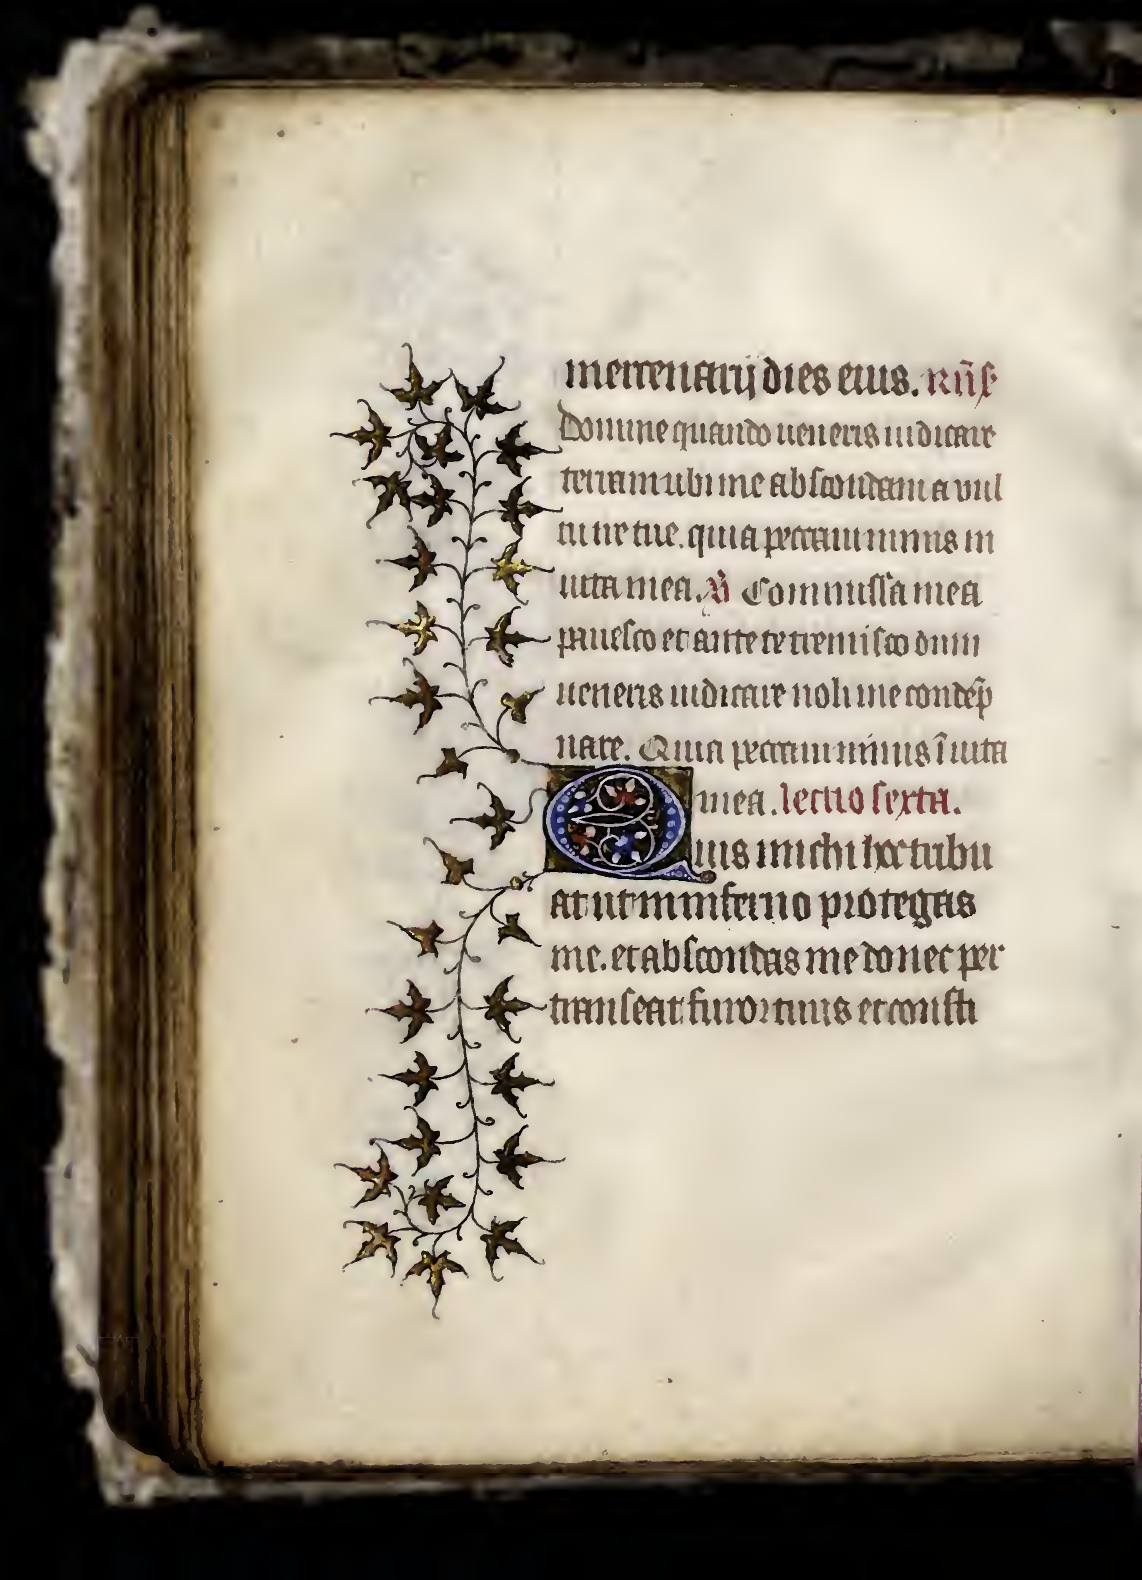 mercenarij dies eius. Rñs
Domine quando ueneris iudicare
terram ubi me abscondam a vul
tu ire tue. quia peccaui nimis in
uita mea. v̄ Commissa mea
pauesco et ante te tremisco dum
ueneris iudicare noli me condēp
nare. Quia peccaui nimis ī uita
mea. lectio sexta.
Quis michi hoc tribu
at ut in inferno protegas
me. et abscondas me donec per
transeat furor tuus et consti